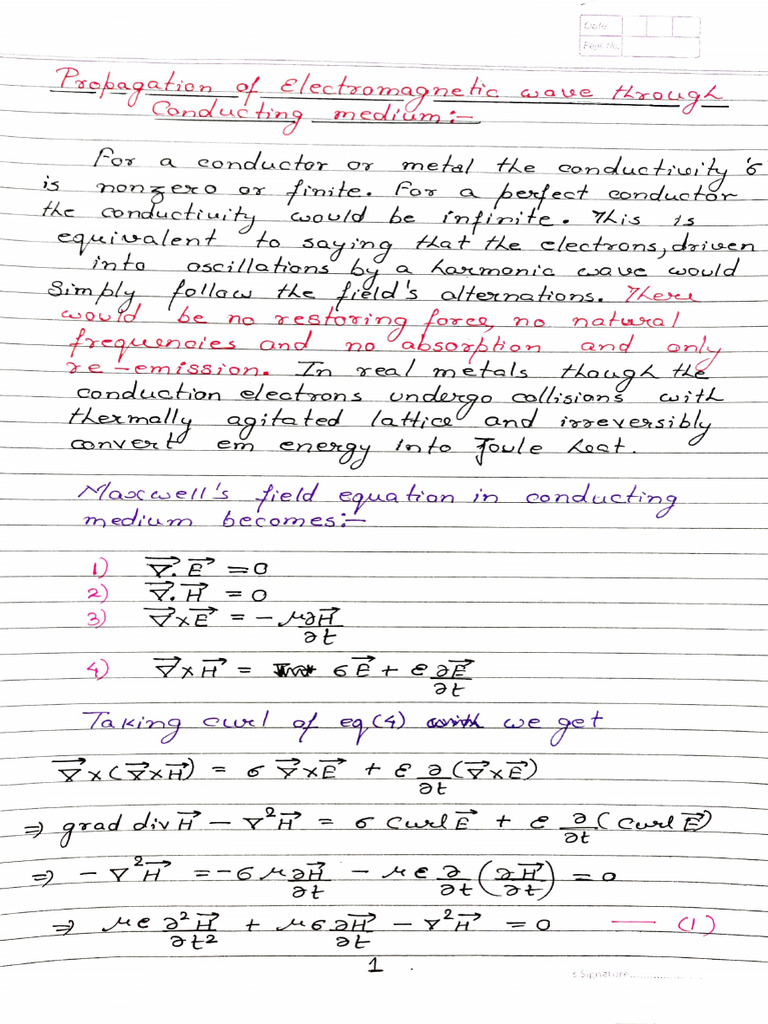 Date
Page No.
Propagation of Electromagnetic wave through
Conducting medium:-
For a conductor or metal the conductivity 'σ
is nonzero or finite. For a perfect conductor
the conductivity would be infinite. This is
equivalent to saying that the electrons, driven
into oscillations by a harmonic wave would
Simply follow the field's alternations. There
would be no restoring force, no natural
frequencies and no absorption and only
re-emission. In real metals though the
conduction electrons undergo collisions with
thermally agitated lattice and irreversibly
convert em energy into Joule heat.
Maxwell's field equation in conducting
medium becomes:-
1) ∇⃗.E⃗ = 0
2) ∇⃗.H⃗ = 0
3) ∇⃗×E⃗ = -μ∂H⃗/∂t
4) ∇⃗×H⃗ = σE⃗ + ε∂E⃗/∂t
Taking curl of eq(4) we get
∇⃗×(∇⃗×H⃗) = σ ∇⃗×E⃗ + ε ∂/∂t(∇⃗×E⃗)
⇒ grad div H⃗ - ∇²H⃗ = σ Curl E⃗ + ε ∂/∂t(Curl E⃗)
⇒ -∇²H⃗ = -σμ∂H⃗/∂t - με ∂/∂t(∂H⃗/∂t) = 0
⇒ με ∂²H⃗/∂t² + μσ∂H⃗/∂t - ∇²H⃗ = 0 — (1)
1
s Signature..............